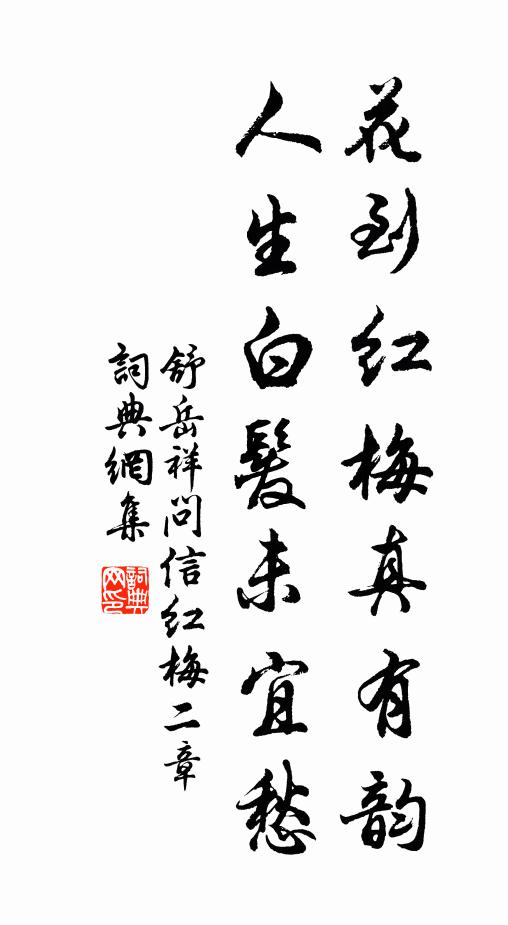 花到红梅真有韵
人生白髪未宜愁
舒岳祥问信红梅二章
詞典網集
詞典网印